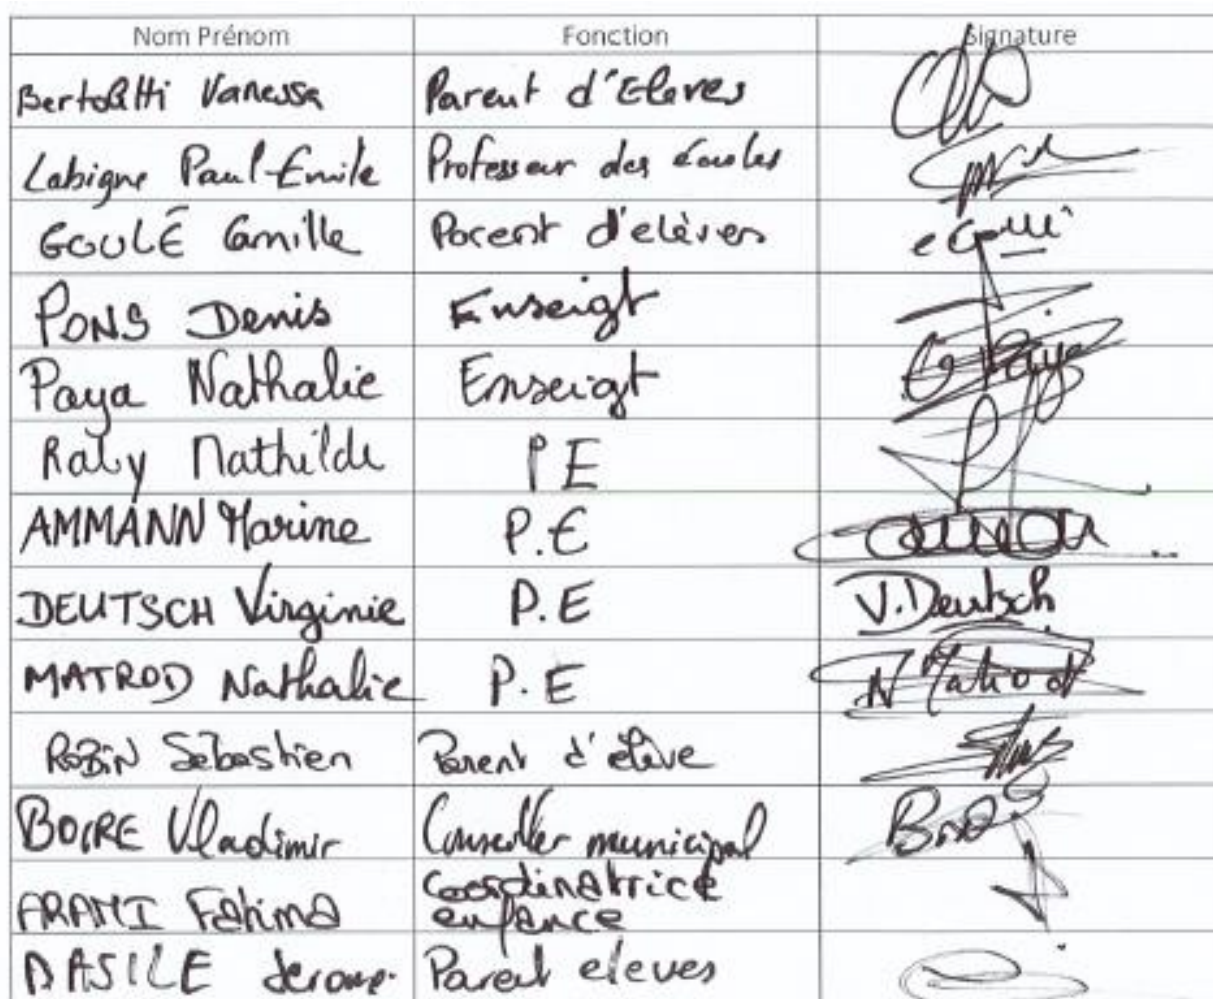 Nom Prénom Fonction Signature
Bertoletti Vanessa Parent d'Eleves
Labigne Paul-Emile Professeur des écoles
GOULÉ Camille Parent d'elèves
PONS Denis Enseigt
Paya Nathalie Enseigt
Raby Mathilde PE
AMMANN Marine P.E
DEUTSCH Virginie P.E V.Deutsch
MATROD Nathalie P.E N Matrod
ROBIN Sébastien Parent d'élève
BOIRE Vladimir Conseiller municipal
ARAMI Fatima Coordinatrice
enfance
BASILE Jerome Parent eleves